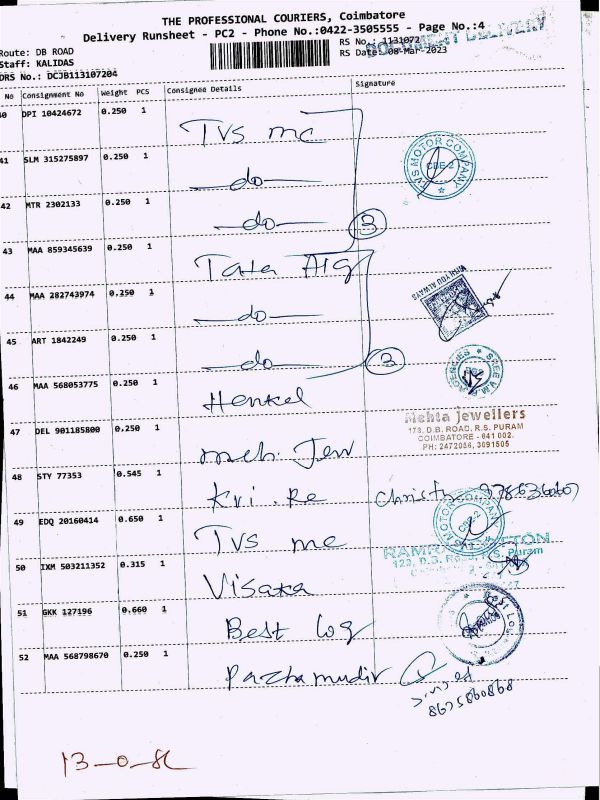 THE PROFESSIONAL COURIERS, Coimbatore
Delivery Runsheet - PC2 - Phone No.:0422-3505555 - Page No.:4
Route: DB ROAD
RS No.: 1131072
DOCUMENT DELIVERY
Staff: KALIDAS
RS Date: 08-Mar-2023
DRS No.: DCJB113107204
No Consignment No Weight PCS Consignee Details Signature
40 DPI 10424672 0.250 1
TVS mc
41 SLM 315275897 0.250 1
do
TVS MOTOR COMPANY
CBE-2
42 MTR 2302133 0.250 1
do
3
43 MAA 859345639 0.250 1
Tata AIG
WITH YOU ALWAYS
44 MAA 282743974 0.250 1
do
45 ART 1842249 0.250 1
do
3
SREE V.M. AGENCIES
46 MAA 568053775 0.250 1
Henkel
Mehta Jewellers
173, D.B. ROAD, R.S. PURAM
COIMBATORE - 641 002.
PH: 2472056, 3091505
47 DEL 901185800 0.250 1
meh. Jew
48 STY 77353 0.545 1
Kri. Re
49 EDQ 20160414 0.650 1
TVS mc
TVS MOTOR COMPANY
CBE-2
122, D.B. Road, R.S. Puram
50 IXM 503211352 0.315 1
Visaka
51 GKK 127196 0.660 1
Best log
Best Log
52 MAA 568798670 0.250 1
Pazhamudir
8675860868